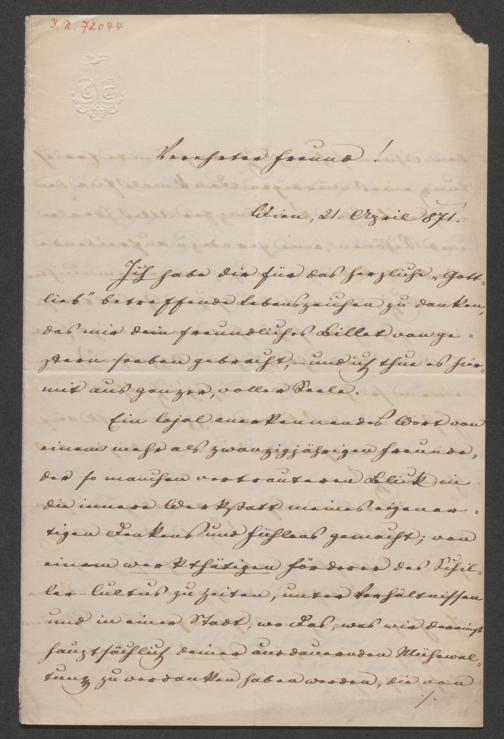 I. N. 72044
Verehrter Freund!
Wien, 21. April 871.
Ich habe dir für das herzliche, „Gott-
lieb" betreffende Lebenszeichen zu danken,
das mir dein freundliches Billet von ge-
stern soeben gebracht, – und ich thue es hier-
mit aus ganzer, voller Seele.
Ein lojal anerkennendes Wort von
einem mehr als zwanzigjährigen Freunde,
der so manchen vertrauteren Blick in
die innere Werkstatt meines eigenar-
tigen Denkens und Fühlens gemacht; von
einem werkthätigen Förderer des Schil-
ler-Cultus zu Zeiten, unter Verhältnissen
und in einer Stadt, wo das, was wir dereinst
hauptsächlich deiner ausdauernden Mühewal-
tung zu verdanken haben werden, die von
./.